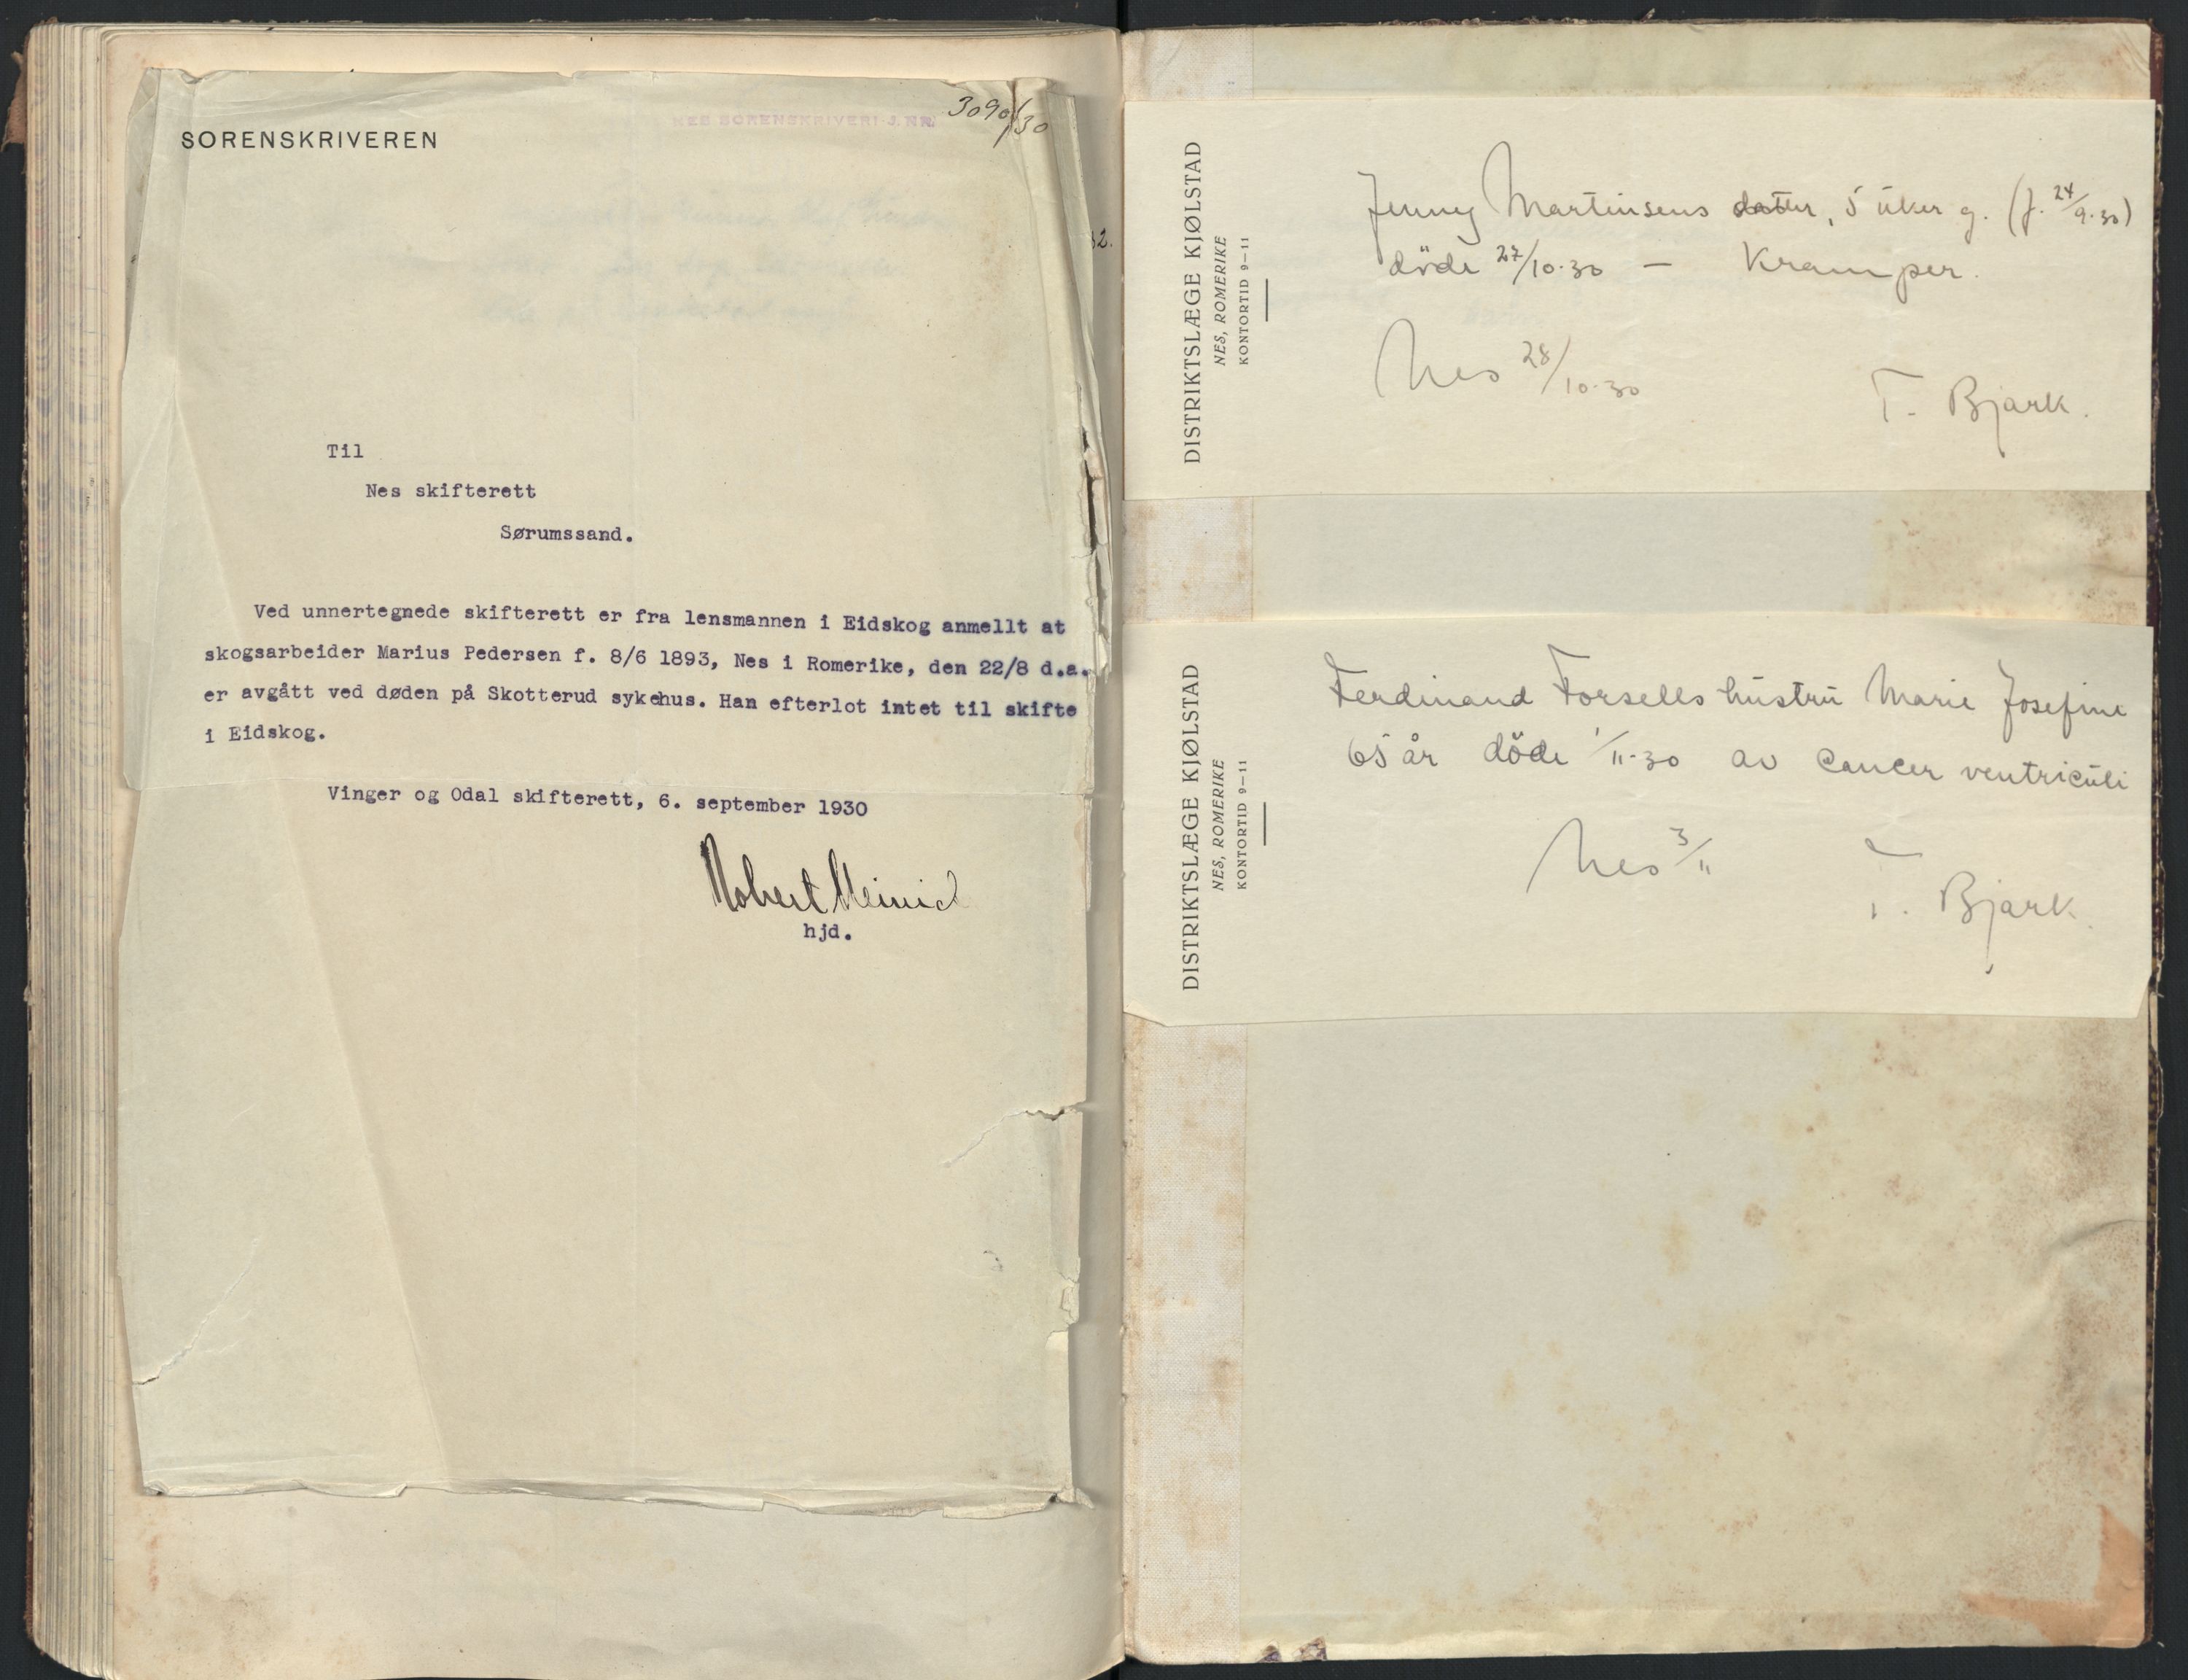 SORENSKRIVEREN
NES SORENSKRIVERI J. NR. 3090/30
Til
Nes skifterett
Sørumssand.
Ved unnertegnede skifterett er fra lensmannen i Eidskog anmellt at
skogsarbeider Marius Pedersen f. 8/6 1893, Nes i Romerike, den 22/8 d.a.
er avgått ved døden på Skotterud sykehus. Han efterlot intet til skifte
i Eidskog.
Vinger og Odal skifterett, 6. september 1930
Robert
hjd.
2.
DISTRIKTSLÆGE KJØLSTAD
NES, ROMERIKE
KONTORTID 9–11
Jenny Martinsens datter, 5 uker g. (f. 24/9.30)
döde 27/10.30 — Kramper.
Nes 28/10.30
T. Bjark.
DISTRIKTSLÆGE KJØLSTAD
NES, ROMERIKE
KONTORTID 9–11
Ferdinand Forsells hustru Marie Josefine
65 år döde 1/11-30 av Cancer ventriculi
Nes 3/11
T. Bjark.